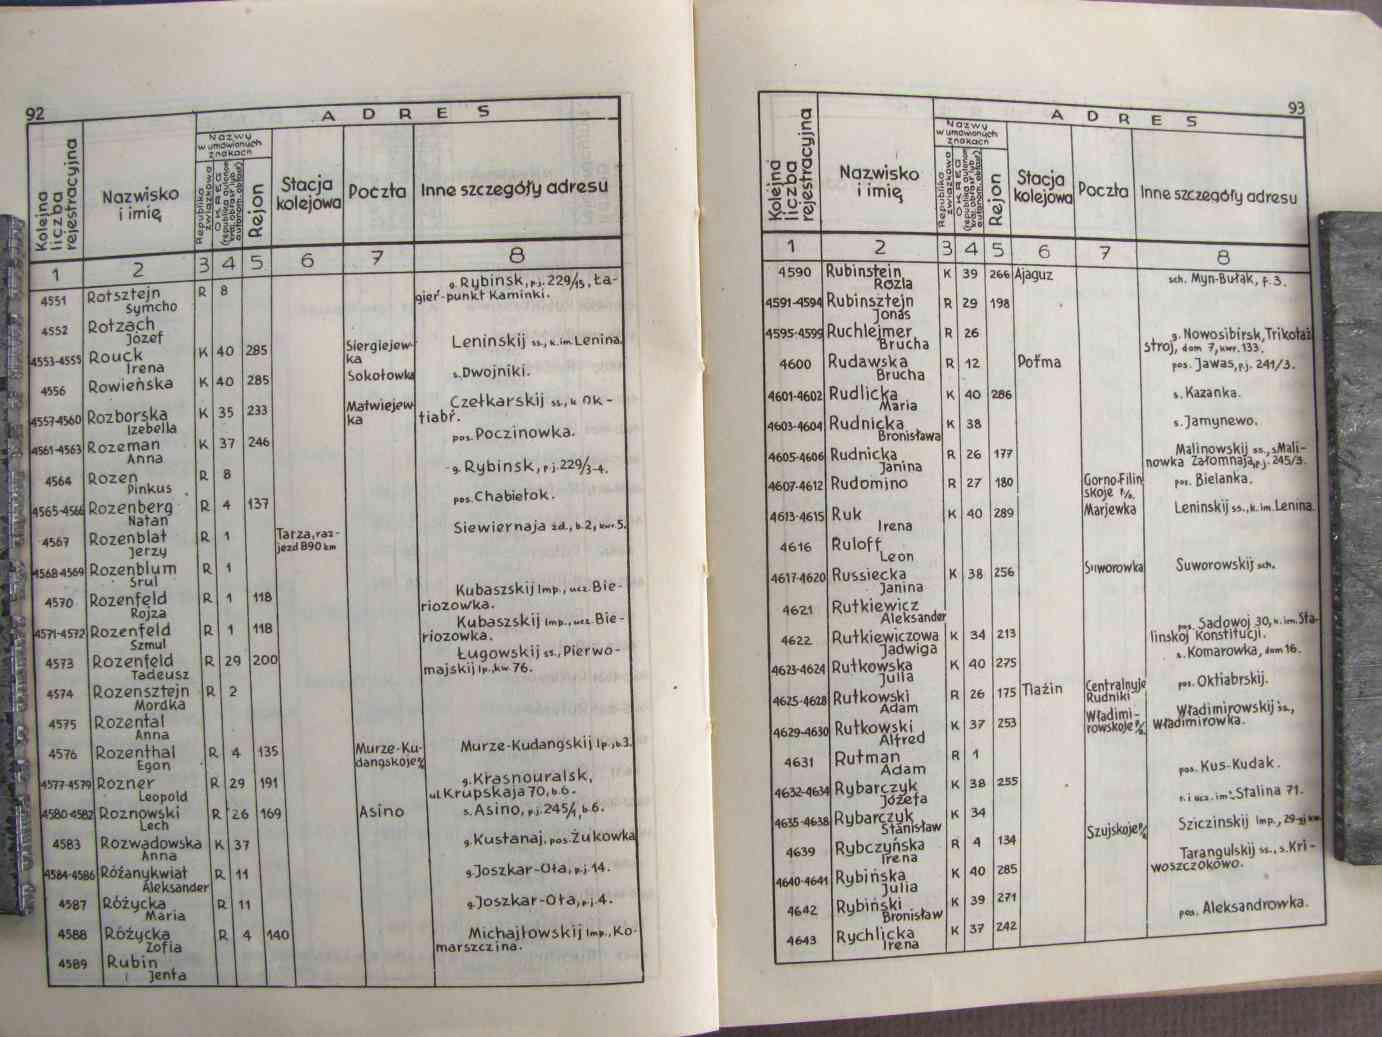 92
A D R E S
Kolejna liczba rejestracyjna
Nazwisko i imię
Nazwy w umówionych znakach
Republika związkowa
OKRĘG
Rejon
Stacja kolejowa
Poczta
Inne szczegóły adresu
1 2 3 4 5 6 7 8
4551 Rotsztejn Symcho R 8 g. Rybinsk, p.j. 229/15, Ła-
gier-punkt Kaminki.
4552 Rotzach Józef
4553-4555 Rouck Irena K 40 285 Siergiejew-ka Leninskij ss., k. im. Lenina.
4556 Rowieńska K 40 285 Sokołowka s. Dwojniki.
4557-4560 Rozborska Izebella K 35 233 Matwiejew-ka Czełkarskij ss., k. Ok-
tiabř.
4561-4563 Rozeman Anna K 37 246 pos. Poczinowka.
4564 Rozen Pinkus R 8 g. Rybinsk, p.j. 229/3-4.
4565-4566 Rozenberg Natan R 4 137 pos. Chabiełok.
4567 Rozenblat Jerzy R 1 Tarza, raz-jezd 890 km Siewiernaja żd., b. 2, kwr. 5.
4568-4569 Rozenblum Srul R 1
4570 Rozenfeld Rojza R 1 118 Kubaszskij lmp., ucz. Bie-
riozowka.
4571-4572 Rozenfeld Szmul R 1 118 Kubaszskij lmp., ucz. Bie-
riozowka.
4573 Rozenfeld Tadeusz R 29 200 Ługowskij ss., Pierwo-
majskij lp., kw. 76.
4574 Rozensztejn Mordka R 2
4575 Rozental Anna
4576 Rozenthal Egon R 4 135 Murze-Ku-dangskoje Murze-Kudangskij lp., b. 3.
4577-4579 Rozner Leopold R 29 191 g. Krasnouralsk,
ul. Krupskaja 70, b. 6.
4580-4582 Roznowski Lech R 26 169 Asino s. Asino, p.j. 245/1, b. 6.
4583 Rozwadowska Anna K 37 g. Kustanaj, pos. Żukowka
4584-4586 Różanykwiat Aleksander R 11 g. Joszkar-Oła, p.j. 14.
4587 Różycka Maria R 11 g. Joszkar-Oła, p.j. 4.
4588 Różycka Zofia R 4 140 Michajłowskij lmp., Ko-
marszczina.
4589 Rubin Jenta
93
A D R E S
Kolejna liczba rejestracyjna
Nazwisko i imię
Nazwy w umówionych znakach
Republika związkowa
OKRĘG
Rejon
Stacja kolejowa
Poczta
Inne szczegóły adresu
1 2 3 4 5 6 7 8
4590 Rubinstein Rozla K 39 266 Ajaguz sch. Myn-Bułak, f. 3.
4591-4594 Rubinsztejn Jonas R 29 198
4595-4599 Ruchlejmer Brucha R 26 g. Nowosibirsk, Trikotaż
stroj, dom 7, kwr. 133.
4600 Rudawska Brucha R 12 Pořma pos. Jawas, p.j. 241/3.
4601-4602 Rudlicka Maria K 40 286 s. Kazanka.
4603-4604 Rudnicka Bronisława K 38 s. Jamynewo.
4605-4606 Rudnicka Janina R 26 177 Malinowskij ss., s. Mali-
nowka Załomnaja, p.j. 245/3.
4607-4612 Rudomino R 27 180 Gorno-Filin skoje pos. Bielanka.
4613-4615 Ruk Irena K 40 289 Marjewka Leninskij ss., k. im. Lenina.
4616 Ruloff Leon
4617-4620 Russiecka Janina K 38 256 Suworowka Suworowskij sch.
4621 Rutkiewicz Aleksander
4622 Rutkiewiczowa Jadwiga K 34 213 pos. Sadowoj 30, k. im. Sta-
linskoj Konstitucji.
4623-4624 Rutkowska Julia K 40 275 s. Komarowka, dom 16.
4625-4628 Rutkowski Adam R 26 175 Tiażin Centralnyje Rudniki pos. Oktiabrskij.
4629-4630 Rutkowski Alfred K 37 253 Władimi-rowskoje Władimirowskij ss.,
Władimirowka.
4631 Rutman Adam R 1
4632-4634 Rybarczyk Józefa K 38 255 pos. Kus-Kudak.
4635-4638 Rybarczyk Stanisław K 34 Stalina 71.
4639 Rybczyńska Irena R 4 134 Szujskoje Sziczinskij lmp., 29-yj km
4640-4641 Rybińska Julia K 40 285 Tarangulskij ss., s. Kri-
woszczokowo.
4642 Rybiński Bronisław K 39 271
4643 Rychlicka Irena K 37 242 pos. Aleksandrowka.